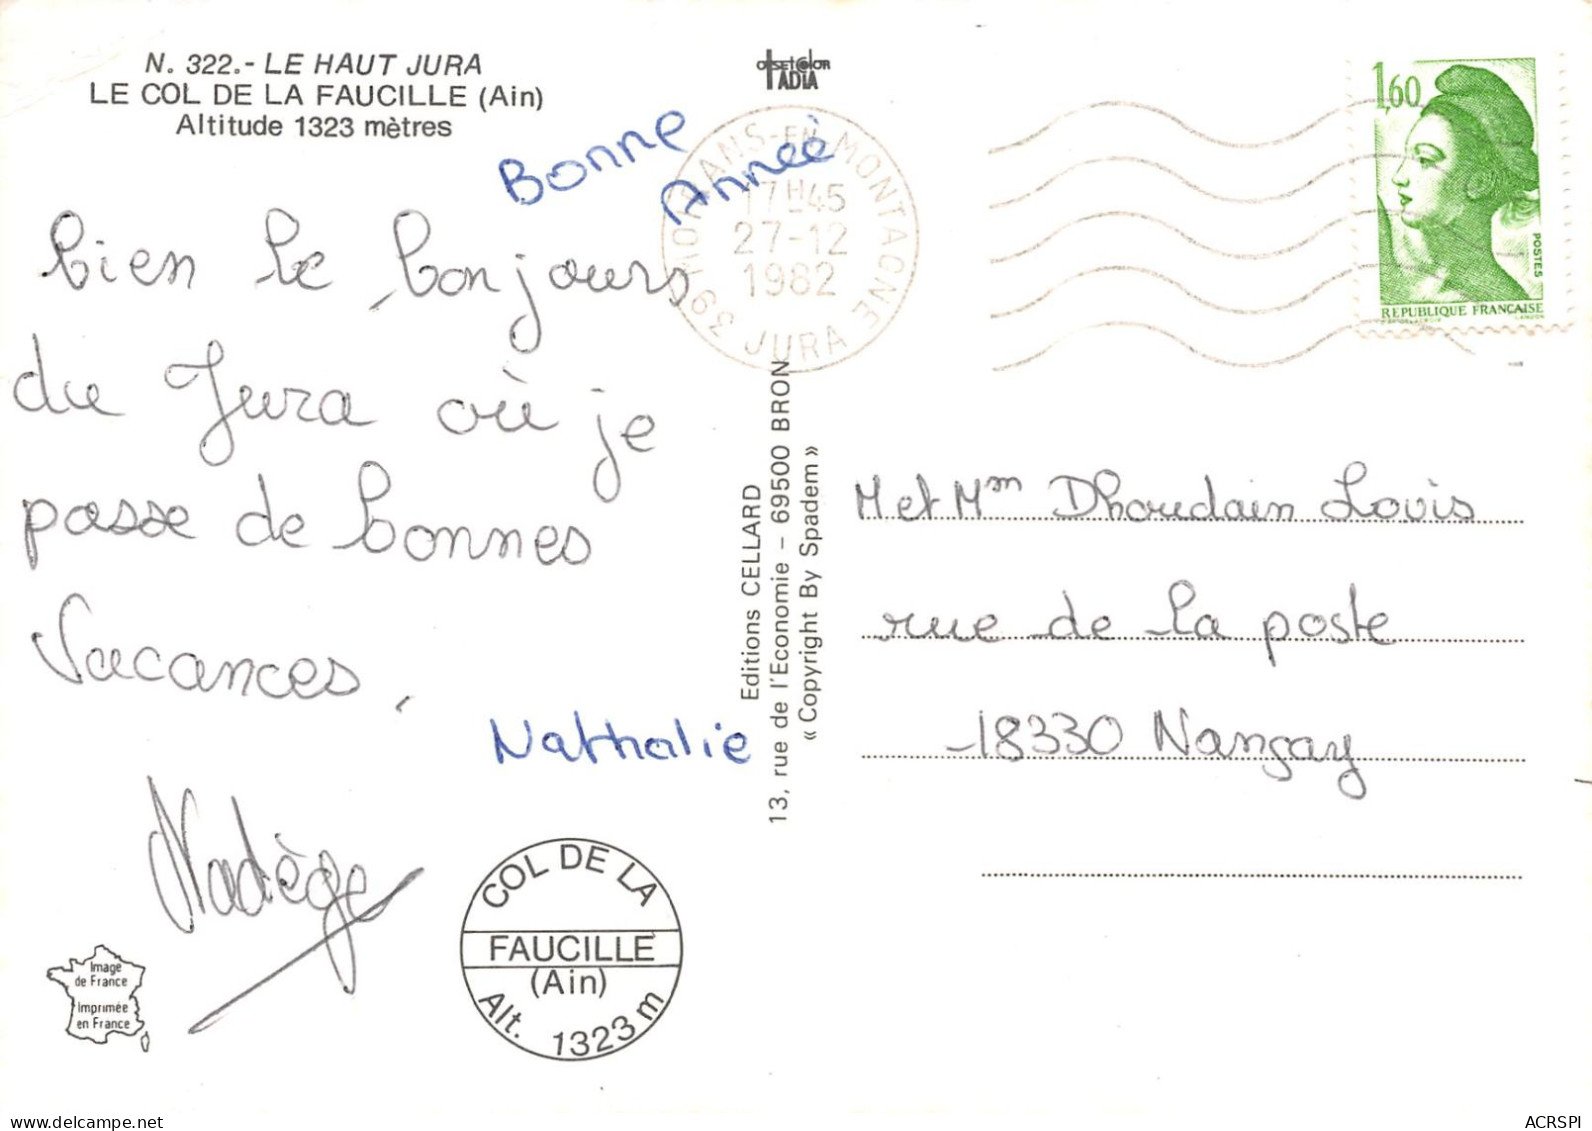 N. 322.- LE HAUT JURA
LE COL DE LA FAUCILLE (Ain)
Altitude 1323 mètres
offsetcolor
IADIA
Bonne
Année
bien le bonjours
du Jura où je
passe de bonnes
Vacances.
Nathalie
Nadège
39 MOIRANS-EN-MONTAGNE
17H45
27-12
1982
JURA
1,60
POSTES
REPUBLIQUE FRANCAISE
Editions CELLARD
13, rue de l'Economie - 69500 BRON
« Copyright By Spadem »
M et Mm Dhoudain Lovis
rue de la poste
18330 Nançay
Image
de France
Imprimée
en France
COL DE LA
FAUCILLE
(Ain)
Alt. 1323 m
www.delcampe.net
ACRSPI